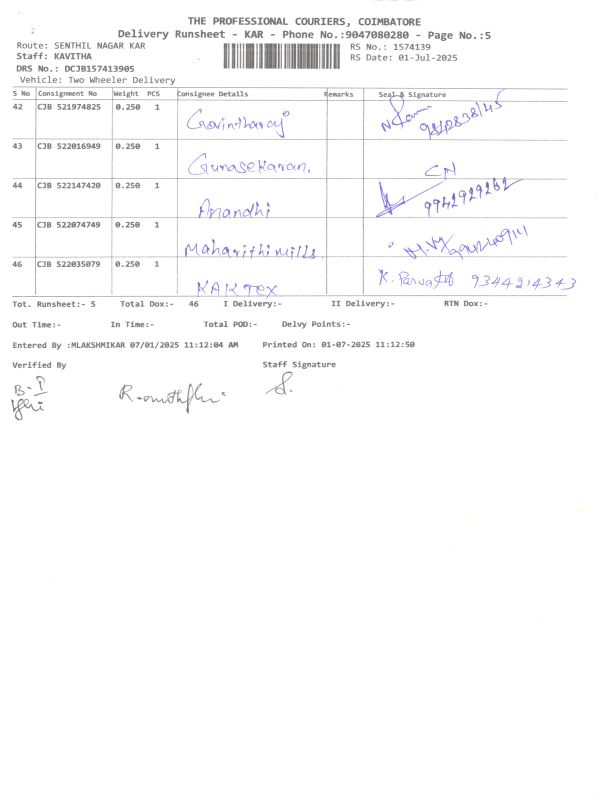 THE PROFESSIONAL COURIERS, COIMBATORE
Delivery Runsheet - KAR - Phone No.:9047080280 - Page No.:5
Route: SENTHIL NAGAR KAR RS No.: 1574139
Staff: KAVITHA RS Date: 01-Jul-2025
DRS No.: DCJB157413905
Vehicle: Two Wheeler Delivery
S No Consignment No Weight PCS Consignee Details Remarks Seal & Signature
42 CJB 521974825 0.250 1 Govindharaj
43 CJB 522016949 0.250 1 Gunasekaran. CN
44 CJB 522147420 0.250 1 Anandhi 9942929262
45 CJB 522074749 0.250 1 Maharithi mills
46 CJB 522035079 0.250 1 KAK Tex K. 9344214343
Tot. Runsheet:- 5 Total Dox:- 46 I Delivery:- II Delivery:- RTN Dox:-
Out Time:- In Time:- Total POD:- Delvy Points:-
Entered By :MLAKSHMIKAR 07/01/2025 11:12:04 AM Printed On: 01-07-2025 11:12:50
Verified By Staff Signature